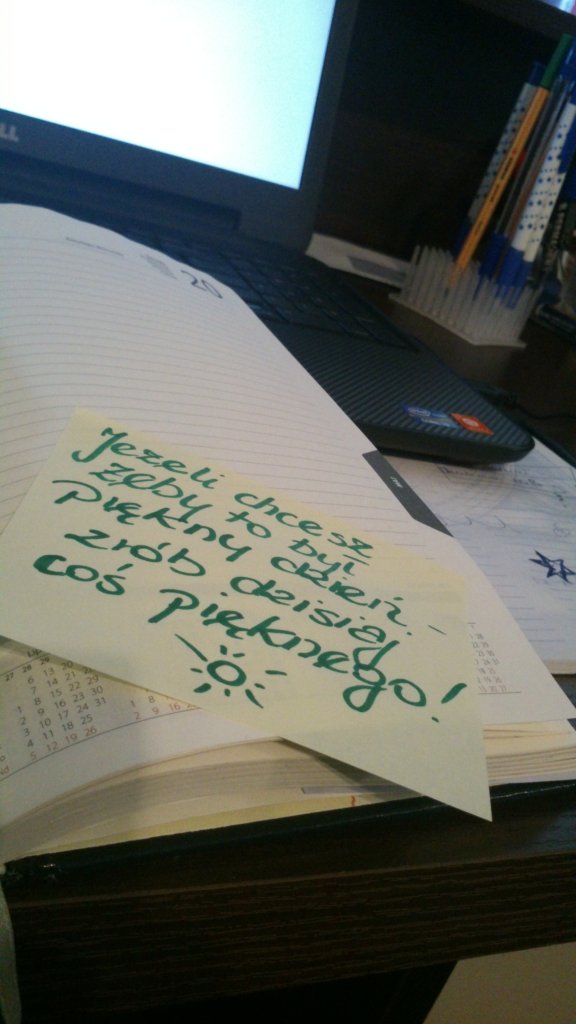 LL
20
Jeżeli chcesz
żeby to był
piękny dzień -
zrób dzisiaj
coś pięknego!
27 28 29
6 13 20
7 14 21
1 8 15 22 29
2 9 16 23 30
3 10 17 24 31
4 11 18 25
5 12 19 26